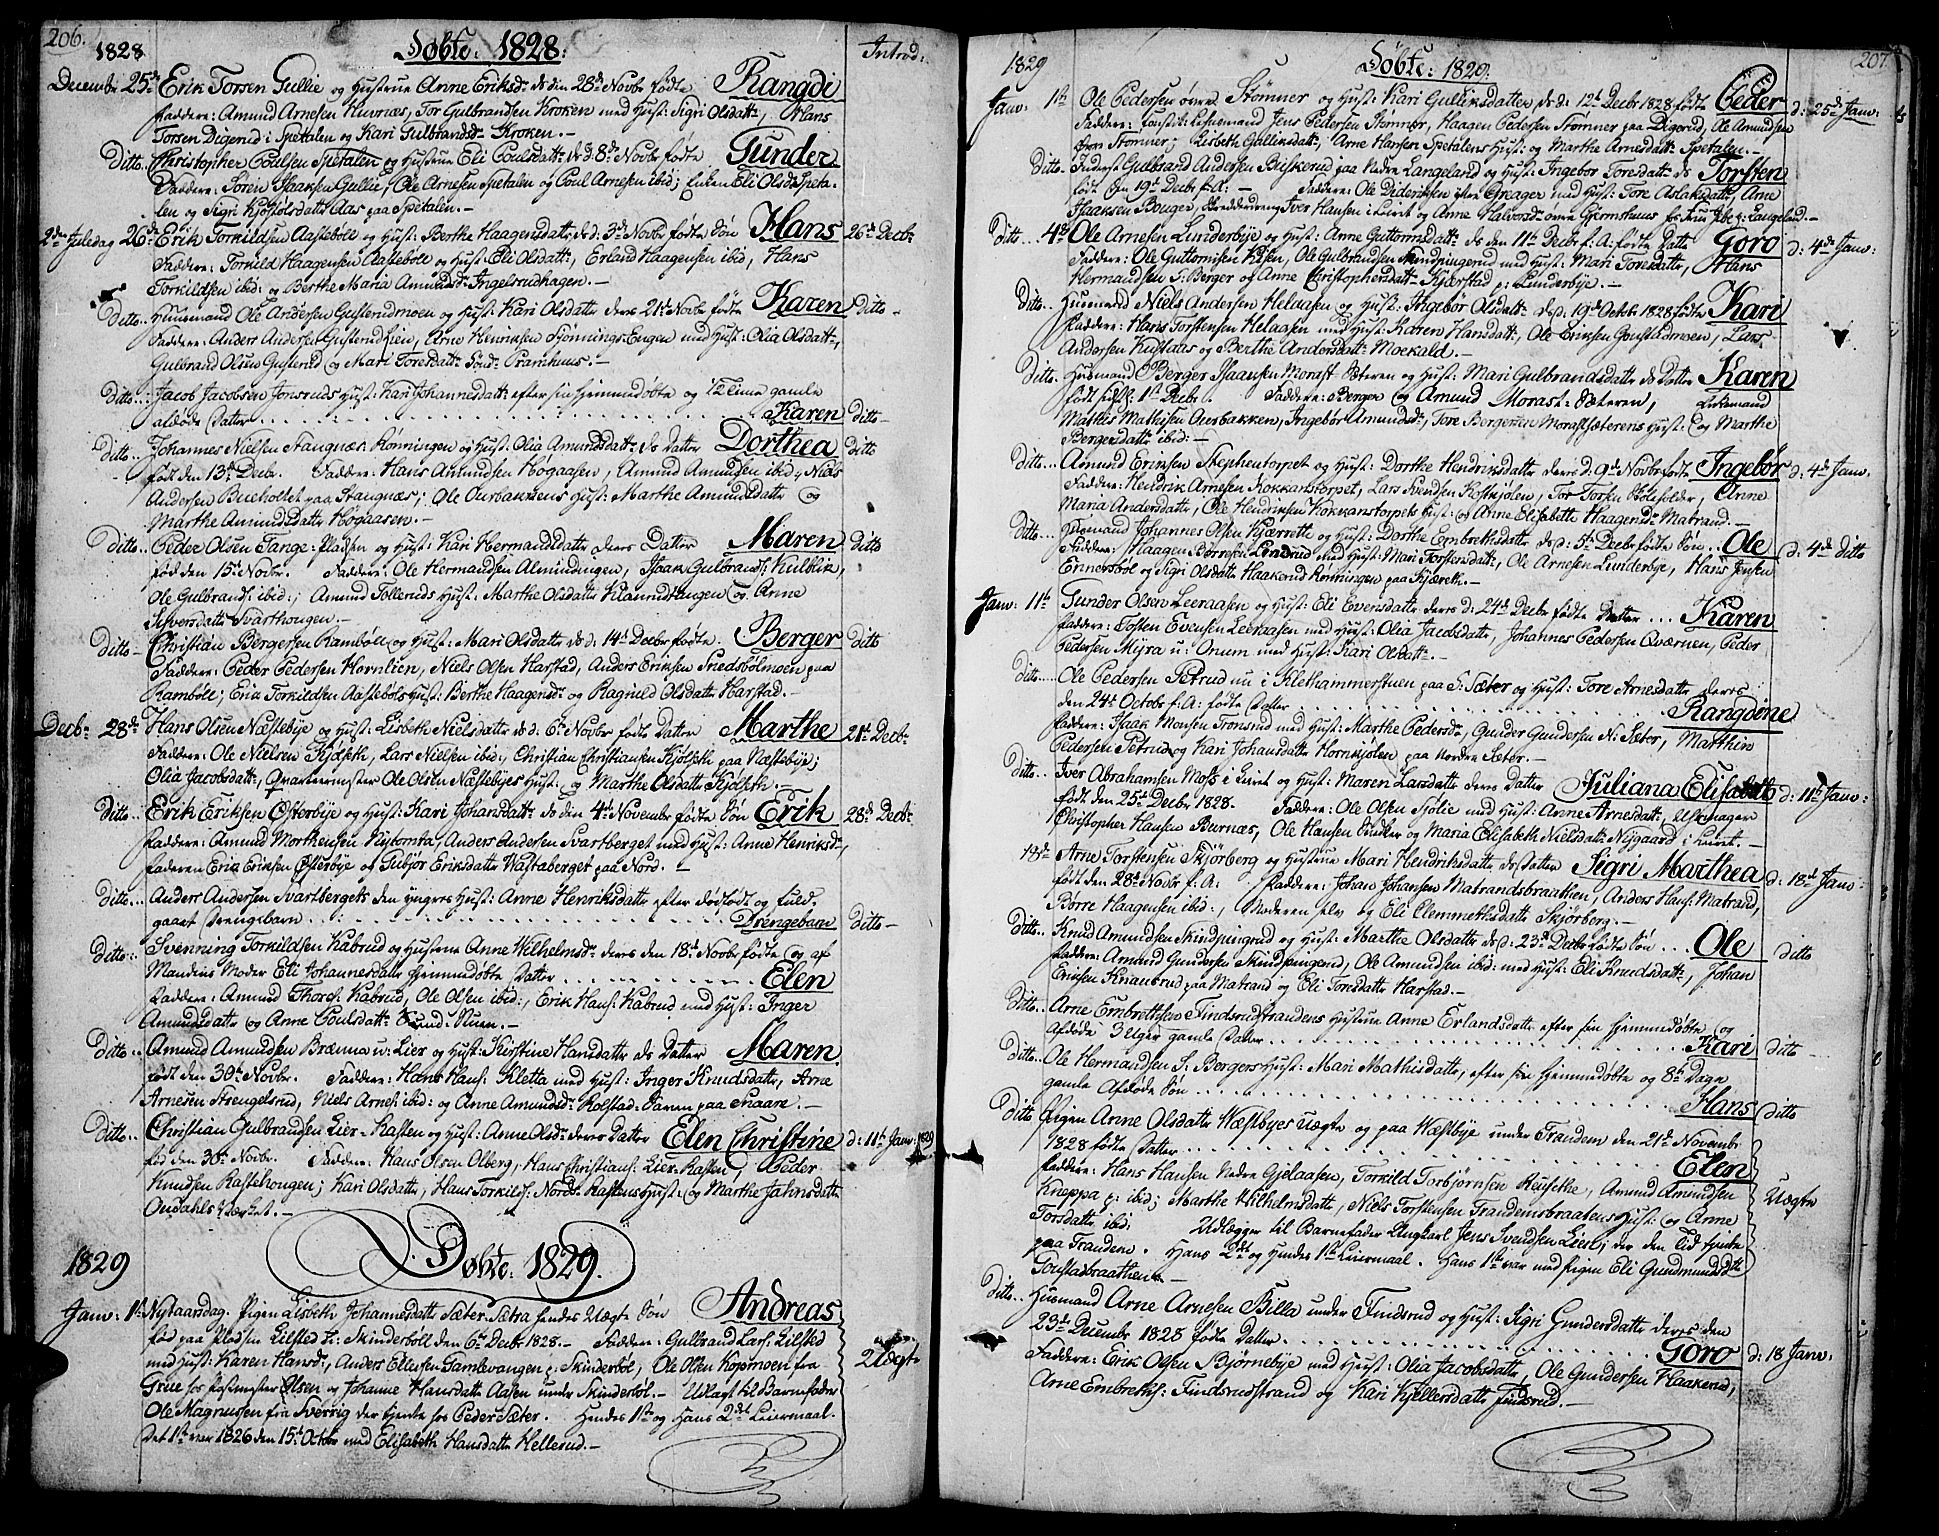 206.
1828
Døbte: 1828:
Introd:
Decembr 25de Erik Torsen Gullie og Hustrue Anne Eriksdr ds den 28de Novbr fødte Rangdi
Faddere: Amund Arnesen Huurnæs, Tor Gulbrandsen Kroken med Hust: Sigri Olsdattr, Hans
Torsen Digerud i Spetalen og Kari Gulbrandsdr Kroken.-
Ditto. Christopher Poulsen Spetalen og Hustrue Eli Poulsdattr ds d: 8de Novbr fødte Gunder
Faddere: Søren Isaaksen Gullie, Ole Arnesen Spetalen og Poul Arnesen ibid; Enken Eli Olsdr Speta-
len og Sigri Kjøstolsdatter Aas paa Spetalen.-
2den Juledag 26de Erik Torkildsen Aastebøle og Hust: Berthe Haagensdattr ds d: 3de Novbr fødte Søn Hans 26de Decbr
Faddere: Torkild Haagensen Aastebøle og Hust: Eli Olsdattr, Erland Haagensen ibid, Hans
Torkildsen ibid: og Berthe Maria Amundsdr Ingelsrudhagen.-
Ditto. Huusmand Ole Andersen Gusterudmoen og Hust: Kari Olsdatter deres 21de Novbr fødte Karen Ditto-
Faddere: Anders Andersen Gusterudlien, Arne Henriksen Skønnings-Engen med Hust: Olia Olsdattr,
Gulbrand Olsen Gusterud og Mari Toresdattr Tons: Pramhuus.-
ditto.. Jacob Jacobsen Jonsruds Hust: Kari Johannesdattr efter sin hjemmedøbte og 12 Timer gamle
afdøde Datter . . . Karen ditto-
ditto.. Johannes Nielsen Stangnæs Rønningen og Hust: Olia Amundsdattr ds Datter Dorthea ditto
født den 13de Decbr. Faddere: Hans Amundsen Høgaasen, Amund Amundsen ibid; Niels
Andersen Bucholtet paa Stangnæs; Ole Ourbakkens Hust: Marthe Amundsdatter og
Marthe Amundsdatter Høgaasen.-
ditto.. Peder Olsen Tange-Pladsen og Hust: Kari Hermandsdatter deres Datter Maren ditto
født den 15de Novbr. Faddere: Ole Hermandsen Almindingen, Isaak Gulbrands: Kulblik,
Ole Gulbrands: ibid:; Amund Solleruds Hust: Marthe Olsdatter Klanrudtangen og Anne
Sifversdatter Svarthougen.-
ditto- Christian Bergersen Rambøll og Hust: Mari Olsdatter ds d: 14de Decbr fødte. Berger ditto
Faddere: Peder Pedersen Hornlien, Niels Olsen Harstad, Anders Eriksen Snedsbølmoen paa
Rambøle; Erik Torkildsen Aastebøls Hust: Berthe Haagensdr og Ragnild Olsdatter Harstad.-
Decbr 28de Hans Olsen Næstebye og Hust: Lisbeth Nielsdatter ds d: 6te Novbr født Datter Marthe 28de Decbr
Faddere: Ole Nielsen Kjølseth, Lars Nielsen ibid:, Christian Christiansen Kjølseth paa Næstebye;
Olia Jacobsdattr, Qvarteermester Ole Olsen Næstebyes Hust: og Marthe Olsdatter Kjølseth.
Ditto.. Erik Eriksen Østerbye og Hust: Kari Johansdattr ds den 4de November fødte Søn Erik 28de Decbr
Faddere: Amund Morthensen Nystomta, Anders Andersen Svartberget med Hust: Anne Henriksdr,
Faderen Erik Eriksen Østerbye og Gubjør Eriksdatter Wastaberget paa Nord.-
ditto... Anders Andersen Svartbergets den yngres Hust: Anne Henriksdatter efter dødfødt og fuld-
gaaet Drengebarn . . . Drengebarn Ditto-
Ditto... Svenning Torkildsen Kabrud og Hustrue Anne Wilhelmsdr deres den 18de Novbr fødte og af
Mandens Moder Eli Johannesdatter hjemmedøbte Datter . . . Elen
Faddere: Amund Thores: Kabrud, Ole Olsen ibid:, Erik Hans: Kabrud med Hust: Inger
Amundsdatter og Anne Poulsdattr Sund-Nuen.-
Ditto.. Amund Amundsen Brænna u: Lier og Hust: Kirstine Hansdatter ds Datter Maren
født den 30te Novbr. Faddere: Hans Hans: Kletta med Hust: Inger Knudsdatter, Arne
Arnesen Strengelsrud, Niels Arnes: ibid: og Anne Amundsdr Kolstad-Saren paa Snaare.-
ditto.. Christian Gulbrandsen Lier-Kasten og Hust: Anne Olsdr deres Datter Elen Christine d: 11te Janv: 1829
fød den 30te Novbr. Faddere: Hans Olsen Olberg, Hans Christians: Lier-Kasten, Peder
Knudsen Kastehougen; Kari Olsdatter, Hans Torkilds: Nords Kastens Hust: og Marthe Jahnsdatter
Oudahls Værket.-
Døbte: 1829.
1829
Janv: 1ste Nytaarsdag. Pigen Lisbeth Johannesdatter Sæter-Sætra hendes Uægte Søn Andreas
fød paa Pladsen Lilsted p: Skinderbøll den 6te Decbr 1828.- Faddere: Gulbrand Lars: Lilsted
med Hust: Karen Hansdr, Anders Ellevsen Gamlevangen p: Skinderbøl, Ole Olsen Kopmoen fra Uægte
Grue hos Postmester Olsen og Johanne Hansdatter Aasen under Skinderbøl.- Udlagt til Barnefader
Ole Magnussen fra Sverrig der tjente hos Peder Sæter. Hendes 1ste og Hans 2det Leiermaal.
Det 1ste var 1826 den 15de Octbr med Elisabeth Hansdatter Hellerud.-
207.
1829
Døbte: 1829.
Janv: 1ste Ole Pedersen øvre Stømner og Hust: Kari Gulliksdatter ds d: 12te Decbr 1828 født Peder d: 25de Janv:
Faddere: Jens Pedersen Stømner, Haagen Pedersen Stømner paa Digerud, Ole Amundsen
øvre Stømner; Lisbeth Gulliksdattr, Arne Hansen Spetalens Hust: og Marthe Arnesdattr Spetalen.-
Ditto. Inderst Gulbrand Andersen Buskerud paa Nedre Langeland og Hust: Ingebor Toresdatter ds Torsten
født den 19de Decbr f: A:- Faddere: Ole Didriksen Greager med Hust: Tore Aslaksdattr, Arne
Isaaksen Bouger, Iver Hansen i Leiret og Anne Halvorsdr øvre Gjermshuus Langeland.-
Ditto.. 4de Ole Arnesen Lunderbye og Hust: Anne Guttormsdattr ds den 11te Decbr f: A: fødte Datter Goro d: 4de Janv:
Faddere: Ole Guttormsen Kusen, Ole Gulbrandsen Skindpingerud med Hust: Mari Toresdatter, Hans
Hermandsen S: Berger og Anne Christophersdattr Kjærstad p: Lunderbye.-
Ditto. Huusmand Niels Andersen Helaasen og Hust: Ingebør Olsdattr ds d: 19de Octobr 1828 fødte Kari
Faddere: Hans Torstensen Helaasen med Hust: Karen Hansdattr, Ole Eriksen Gonstadmoen, Lars
Andersen Kuslaas og Berthe Andersdattr Moekald.-
Ditto. Husmand Berger Isaaksen Morast-Sæteren og Hust: Mari Gulbrandsdatter ds Datter Karen
født sidstl: 1ste Decbr. Faddere: Bergen og Amund Morast-Sæteren, Enkemand
Mathis Mathisen Aurbakken, Ingebør Amundsdr, Tore Bergersen Morastsæterens Hust: og Marthe
Bergersdatter ibid:-
Ditto... Amund Eriksen Stephentorpet og Hust: Dorthe Hendriksdatter deres d: 9de Novbr født Ingebør d: 4de Janv.
Faddere: Hendrik Arnesen Kokkanstorpet, Lars Svendsen Kostkjølen, Tor Torsen Bolefolder, Anne
Maria Andersdatter, Ole Hendriksen Kokkanstorpets Hust: og Anne Elisabeth Haagensdr Matrand.-
Ditto. Husmand Johannes Olsen Kjærrette og Hust: Dorthe Embrethsdatter ds d: 5te Decbr fødte Søn.. Ole d: 4de ditto
Faddere: Haagen Børresen Lindrud med Hust: Mari Torstensdattr, Ole Arnesen Lunderbye, Hans Jensen
Ennersbøl og Sigri Olsdatter Haakerud Rønningen paa Kjæreth.-
Janv: 11te Gunder Olsen Leeraasen og Hust: Eli Evensdatter deres d: 24de Decbr fødte Datter ... Karen
Faddere: Tosten Evensen Leeraasen med Hust: Olia Jacobsdatter, Johannes Pedersen Qværnen, Peder
Pedersen Myra u: Onum med Hust: Kari Olsdattr.-
Ditto.... Ole Pedersen Petrud nu i Klethammerstuen paa S: Sæter og Hust: Tore Arnesdatter deres
den 24de Octobr f: A: fødte Datter . . . Rangdine
Faddere: Isaak Monsen Tronsrud med Hust: Marthe Pedersdr, Gunder Gundersen N: Sæter, Marthin
Pedersen Petrud og Kari Johansdatter Hornkjølen paa Nordre Sæter.-
Ditto.. Iver Abrahamsen Moss i Leiret og Hust: Maren Larsdatter deres Datter Juliana Elisabeth d: 11te Janv:
født den 25de Decbr 1828. Faddere: Ole Olsen Sjølie med Hust: Anne Arnesdattr, Uhrmager
Christopher Hansen Burnæs, Ole Hansen Findler og Maria Elisabeth Nielsdatter Nysgaard i Leiret.-
18de Arne Torstensen Skjørberg og Hustrue Mari Hendriksdatter ds Datter Sigri Marthea d: 18de Janv:
født den 28de Novbr f: A: Faddere: Johan Johansen Matrandsbraathen, Anders Hans: Matrand,
Børre Haagensen ibid:, Moderen selv og Eli Clemmetsdatter Skjørberg.-
Ditto.. Knud Amundsen Skindpingrud og Hust: Marthe Olsdatter ds d: 23de Decbr fødte Søn ... Ole Ditto
Faddere: Amund Gundersen Skindpingerud, Ole Amundsen ibid: med Hust: Eli Knudsdattr, Johan
Eriksen Knausrud paa Matrand og Eli Toresdatter Harstad.-
Ditto. Arne Embrethsen Findsrudstrandens Hustrue Anne Erlandsdatter efter sin hjemmedøbte og
afdøde 3 Uger gamle Datter . . . Kari ditto
Ditto. Ole Hermandsen S: Bergers Hust: Mari Mathisdatter, efter sin hjemmedøbte og 8te Dage
gamle afdøde Søn . . . Hans Ditto
Ditto Pigen Anne Olsdatter Wæstbyes Uægte og paa Wæstbye under Trandem den 21de Novembr
1828 fødte Datter . . . Elen
Faddere: Hans Hansen Nedre Gjelaasen, Torkild Torbjørnsen Reusethe, Amund Amundsen
Kneppa p: ibid; Marthe Wilhelmsdatter, Niels Torstensen Trandemsbraatens Hust: og Anne Uægte
Torsdatter ibid: Udlægger til Barnefader Ungkarl Jens Svendsen Lier; der den Tid tjente
paa Trandem. Hans 2det og hendes 1ste Leiermaal. Hans 1ste var med Pigen Eli Gundmundsdtr
Gonstadbraathen.-
Ditto.. Husmand Arne Arnesen Billa under Findsrud og Hust: Sigri Gundersdatter deres den
23de Decembr 1828 fødte Datter . . . Goro d: 18 Janv:
Faddere: Erik Olsen Bjørnebye med Hust: Olia Jacobsdatter, Ole Gundersen Haakerud,
Arne Embreths: Findsrudstrand og Kari Kjellersdatter Findsrud.-